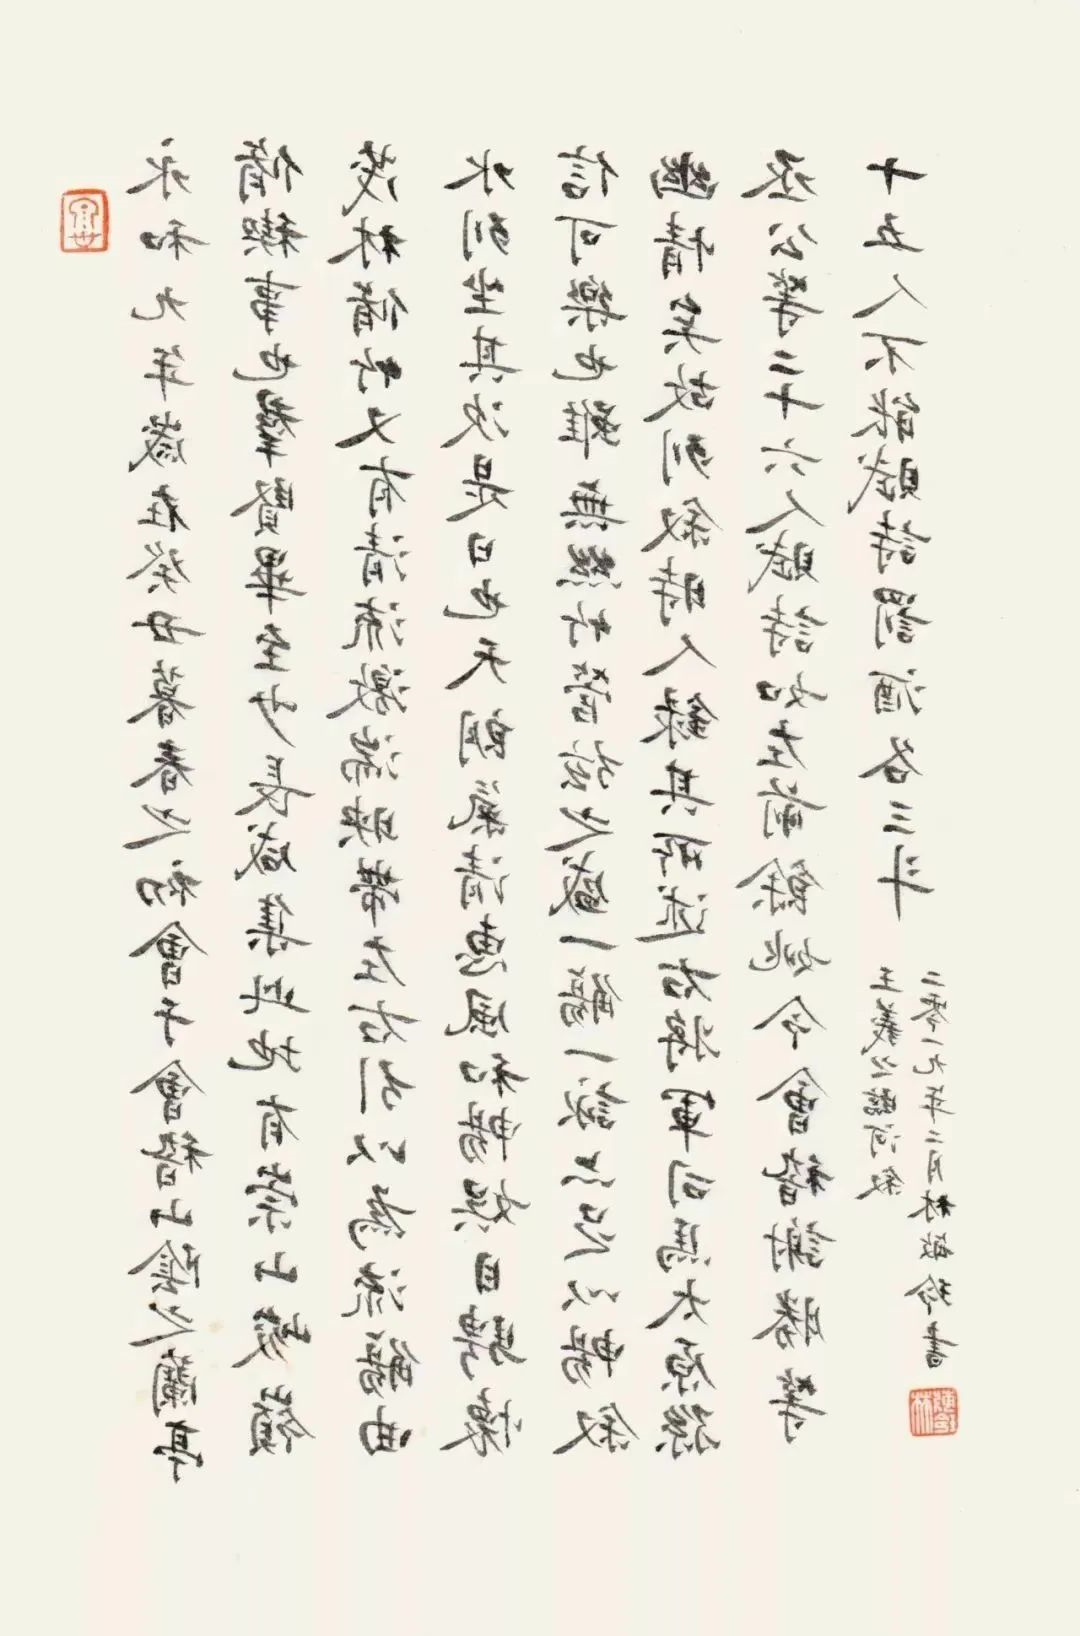 永和九年歲在癸丑暮春之初會于會稽山陰之蘭亭
脩禊事也群賢畢至少長咸集此地有崇山峻領
茂林脩竹又有清流激湍映帶左右引以為流觴曲
水列坐其次是日也天朗氣清惠風和暢娛目騁懷
信可樂也雖無絲竹管弦之盛一觴一詠亦足以暢叙
幽情矣故列叙時人錄其所述右將軍司馬太原孫
丞公等二十六人賦詩如左前餘姚令會稽謝勝等
十五人不能賦詩罰酒各三斗
王羲之臨河叙
二零一九年二月林敏玲書